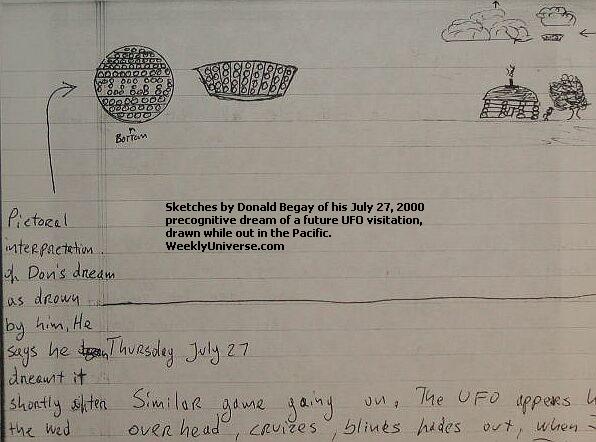 Bottom
Sketches by Donald Begay of his July 27, 2000
precognitive dream of a future UFO visitation,
drawn while out in the Pacific.
WeeklyUniverse.com
Pictoral
interpretation
of Don's dream
as drown
by him, He
says he
dreamt it
shortly after
the wed
Thursday July 27
Similar game going on. The UFO appers
overhead, cruizes, blinks hades out, when